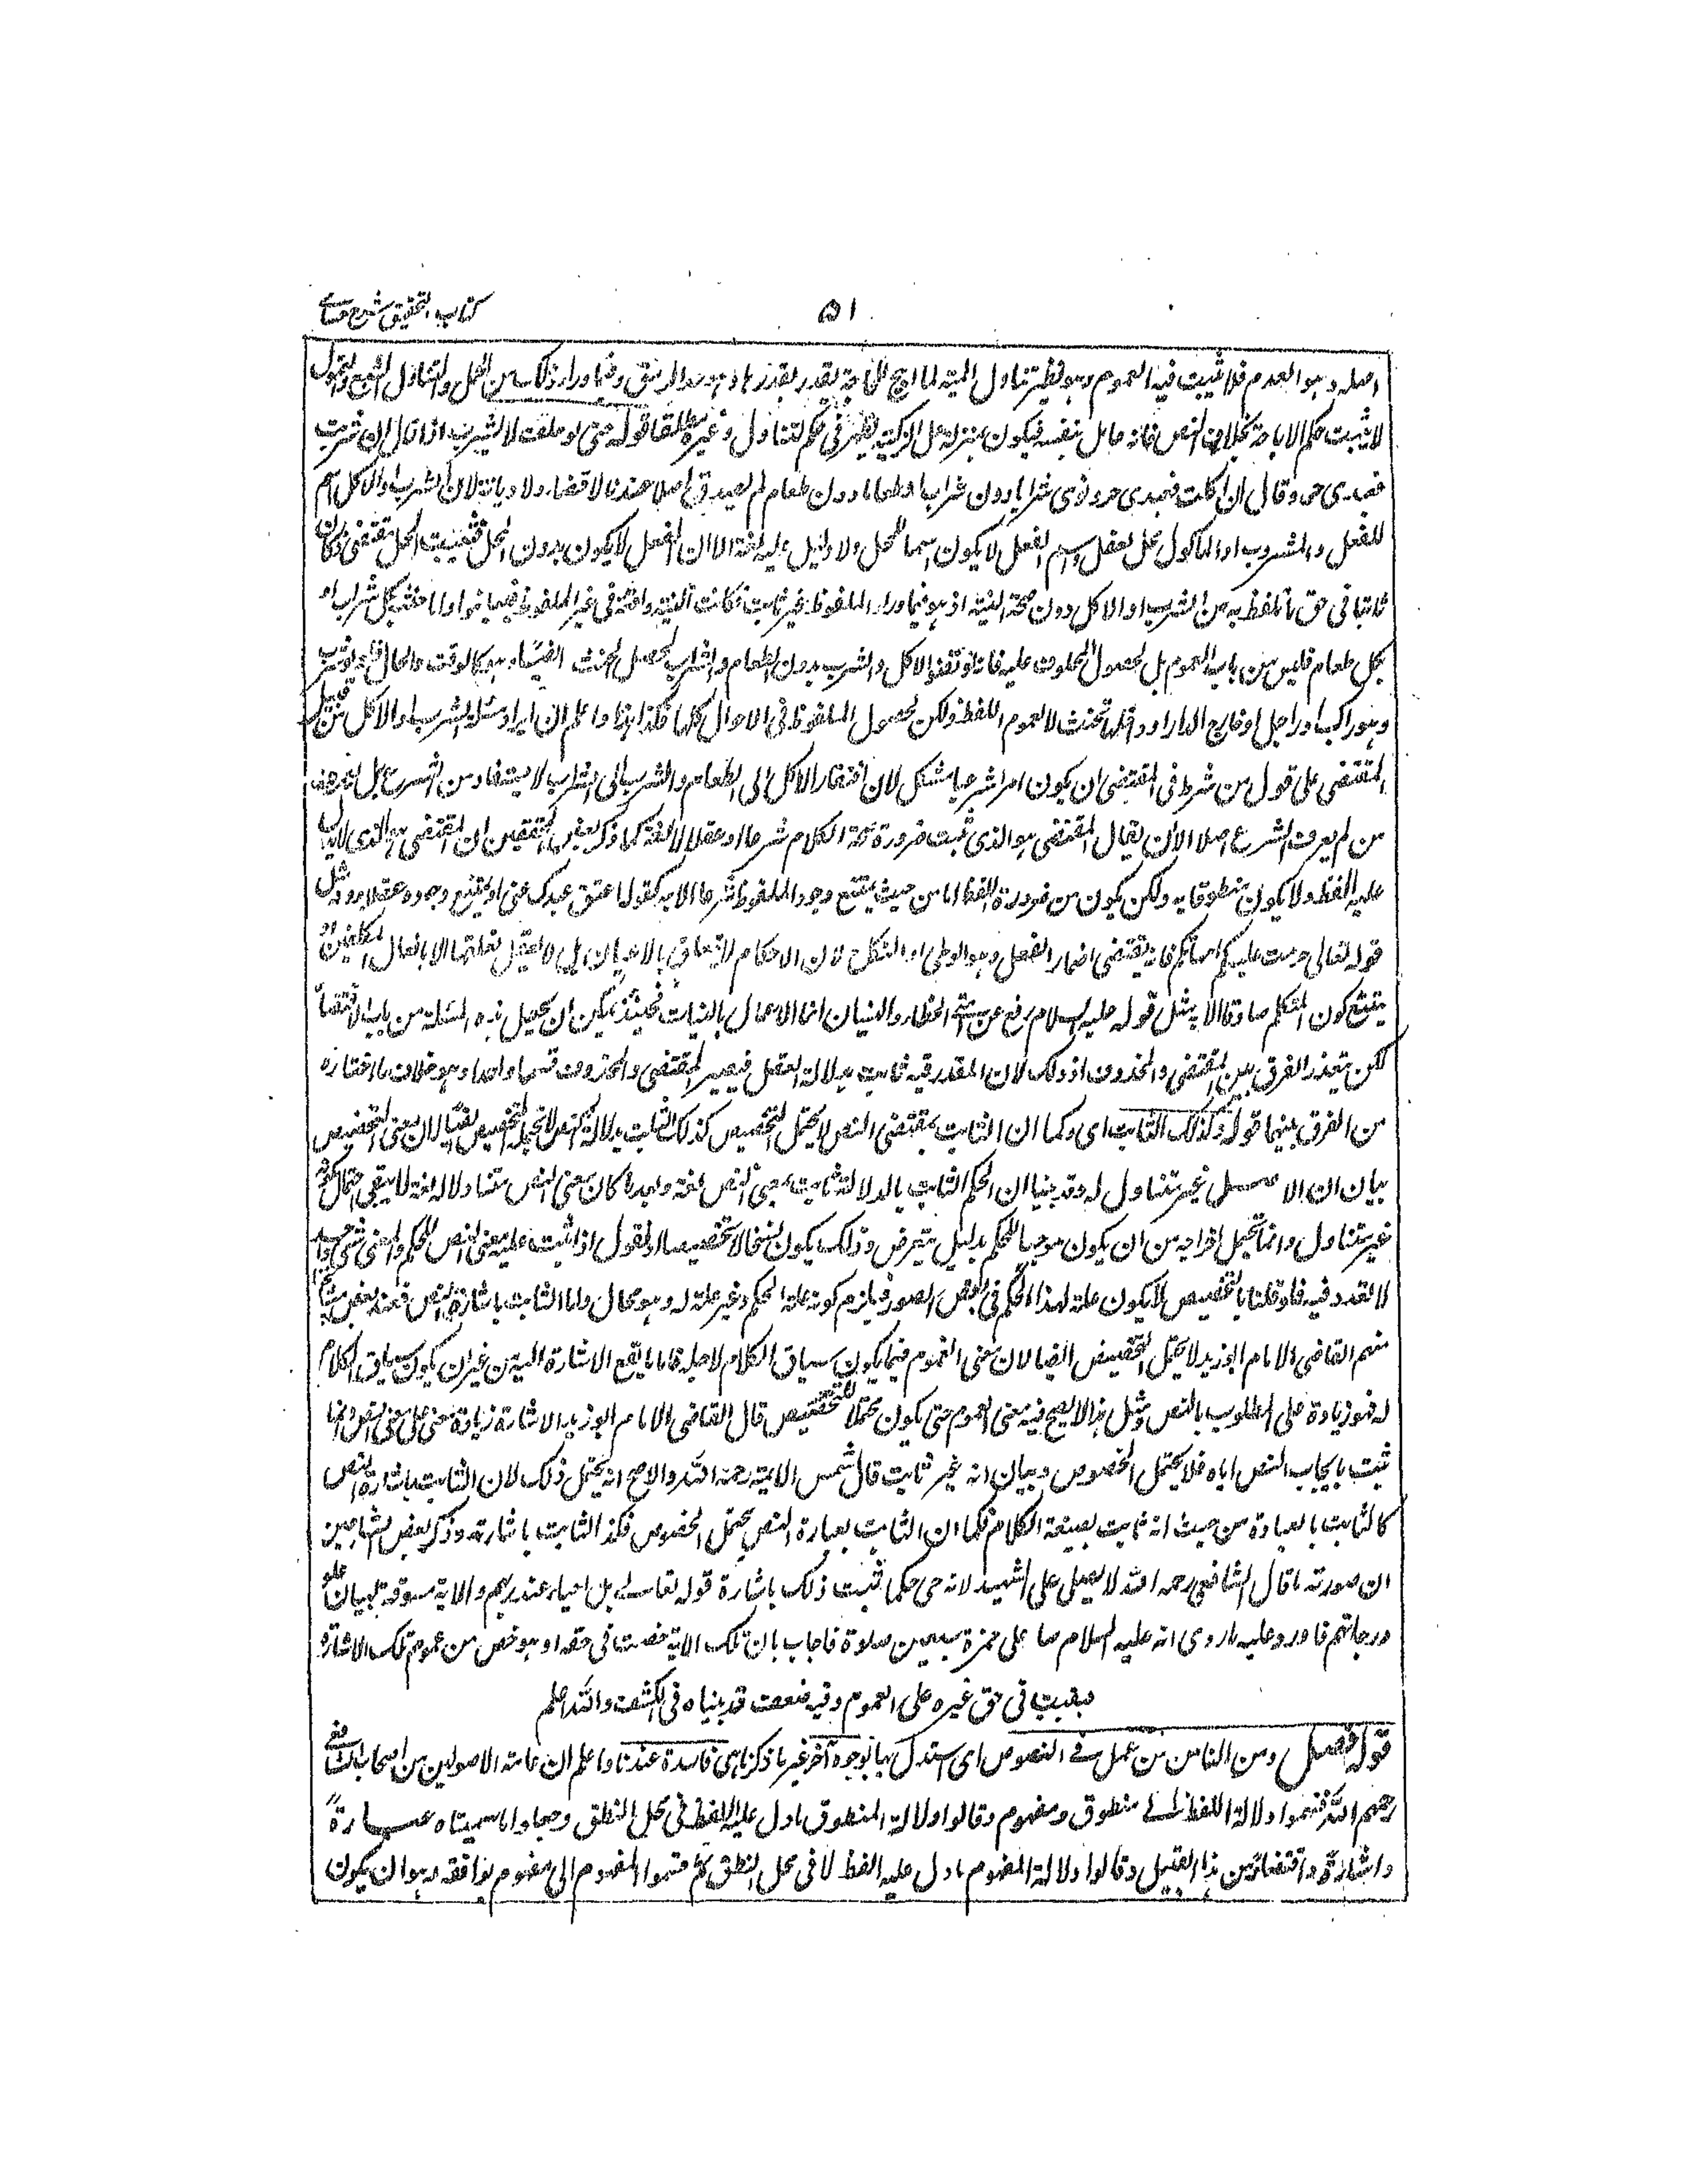 كتاب التحقيق شرح حسامي
٥١
اصله وهو العدم فلا يثبت فيه العموم وهو نظير تناول الميتة لما ابيح للحاجة يقدر بقدرها وهو سد الرمق وفيما وراء ذلك من الحمل والتناول الى الشبع والتمول
لا يثبت حكم الاباحة بخلاف النص فانه عامل بنفسه فيكون بمنزلة حل الذكية يظهر في حكم التناول وغيره مطلقا قوله حتى لو حلف لا يشرب اذا قال ان شربت
فعبدي حر وقال ان اكلت فعبدي حر ونوى شرابا دون شراب او طعاما دون طعام لم يصدق اصلا عندنا لا قضاء ولا ديانة لان الشرب والاكل اسم
للفعل والمشروب او الماكول محل الفعل واسم الفعل لا يكون اسما للمحل ولا دليل عليه لغة الا ان الفعل لا يكون بدون المحل فثبت المحل مقتضى فكان
ثابتا في حق ما تلفظ به من الشرب او الاكل دون صحة النية اذ هو فيما وراء الملفوظ غير ثابت فكانت النية واقعة في غير الملفوظ فيلغوا واما حنثه بكل شراب او
بكل طعام فليس من باب العموم بل لحصول المحلوف عليه فانه لو تصور الاكل والشرب بدون الطعام والشراب لحصل الحنث ايضا وهو كالوقت والحال فانه لو شرب
وهو راكب او راجل او خارج الدار او داخلها يحنث لا لعموم اللفظ ولكن لحصول الملفوظ في الاحوال كلها فكذا هذا واعلم ان ايراد مسئلة الشرب او الاكل من قبيل
المقتضى على قول من شرط في المقتضى ان يكون امرا شرعيا مشكل لان افتقار الاكل الى الطعام والشرب الى الشراب لا يستفاد من الشرع بل يعرفه
من لم يعرف الشرع اصلا الا ان يقال المقتضى هو الذي ثبت ضرورة صحة الكلام شرعا او عقلا لا لغة كما ذكر بعض المحققين ان المقتضى هو الذي لا يدل
عليه اللفظ ولا يكون منطوقا به ولكن يكون من ضرورة اللفظ اما من حيث يمتنع وجود الملفوظ شرعا الا به كقولك اعتق عبدك عني او يمتنع وجوده عقلا بدونه مثل
قوله تعالى حرمت عليكم امهاتكم فانه يقتضي اضمار الفعل وهو الوطي او النكاح لان الاحكام لا تتعلق بالاعيان بل لا يعقل تعلقها الا بافعال المكلفين او
يمتنع كون المتكلم صادقا الا به مثل قوله عليه السلام رفع عن امتي الخطاء والنسيان انما الاعمال بالنيات فحينئذ يمكن ان يجعل هذه المسئلة من باب الاقتضاء
لكن يتعذر الفرق بين المقتضى والمحذوف اذ ذاك لان المقدر فيه ثابت بدلالة العقل فيصير المقتضى والمحذوف قسما واحدا وهو خلاف ما اختاره
من الفرق بينهما قوله وكذلك الثابت اى وكما ان الثابت بمقتضى النص لا يحتمل التخصيص كذلك الثابت بدلالة النص لا يحتمل التخصيص ايضا لان معنى التخصيص
بيان ان الاصل غير متناول له وقد بينا ان الحكم الثابت بالدلالة ثابت بمعنى النص لغة وبعد ما كان معنى النص متناولا له لغة لا يبقى احتمال كونه
غير متناول وانما يحتمل اخراجه من ان يكون موجبا للحكم بدليل يتعرض وذلك يكون نسخا لا تخصيصا او نقول اذا ثبت علية معنى النص للحكم والمعنى شيء واحد
لا تعدد فيه فلو قلنا بالتخصيص لا يكون علة لهذا الحكم في بعض الصور فيلزم كونه علة الحكم وغير علة له وهو محال واما الثابت باشارة النص فعند بعض مشايخنا
منهم القاضي الامام ابو زيد لا يحتمل التخصيص ايضا لان معنى العموم فيما يكون سياق الكلام لاجله فاما ما يقع الاشارة اليه من غير ان يكون سياق الكلام
له فهو زيادة على المطلوب بالنص ومثل هذا لا يصح فيه معنى العموم حتى يكون محتملا للتخصيص قال القاضي الامام ابو زيد الاشارة زيادة معنى على معنى النص وانما
ثبت بايجاب النص اياه فلا يحتمل الخصوص وبيان انه غير ثابت قال شمس الايمة رحمه الله والاصح انه يحتمل ذلك لان الثابت باشارة النص
كالثابت بالعبارة من حيث انه ثابت بصيغة الكلام فكما ان الثابت بعبارة النص يحتمل الخصوص فكذا الثابت باشارته وذكر بعض الشارحين
ان صورته ما قال الشافعي رحمه الله لا يصلى على الشهيد لانه حي حكما ثبت ذلك باشارة قوله تعالى بل احياء عند ربهم والاية مسوقة لبيان علو
درجاتهم فاورد عليه ما روى انه عليه السلام صلى على حمزة سبعين صلوة فاجاب بان تلك الاية خصت في حقه او هو خص من عموم تلك الاشارة و
بقيت في حق غيره على العموم وفيه ضعف قد بيناه في الكشف والله اعلم
قوله فصل ومن الناس من عمل في النصوص اى استدل بها بوجوه آخر غير ما ذكرنا هي فاسدة عندنا واعلم ان عامة الاصوليين من اصحاب الشافعي
رحمهم الله قسموا دلالة اللفظ الى منطوق ومفهوم وقالوا دلالة المنطوق ما دل عليه اللفظ في محل النطق وجعلوا ما سميناه عبارة
واشارة واقتضاء من هذا القبيل وقالوا دلالة المفهوم ما دل عليه اللفظ لا في محل النطق ثم قسموا المفهوم الى مفهوم موافقة وهو ان يكون